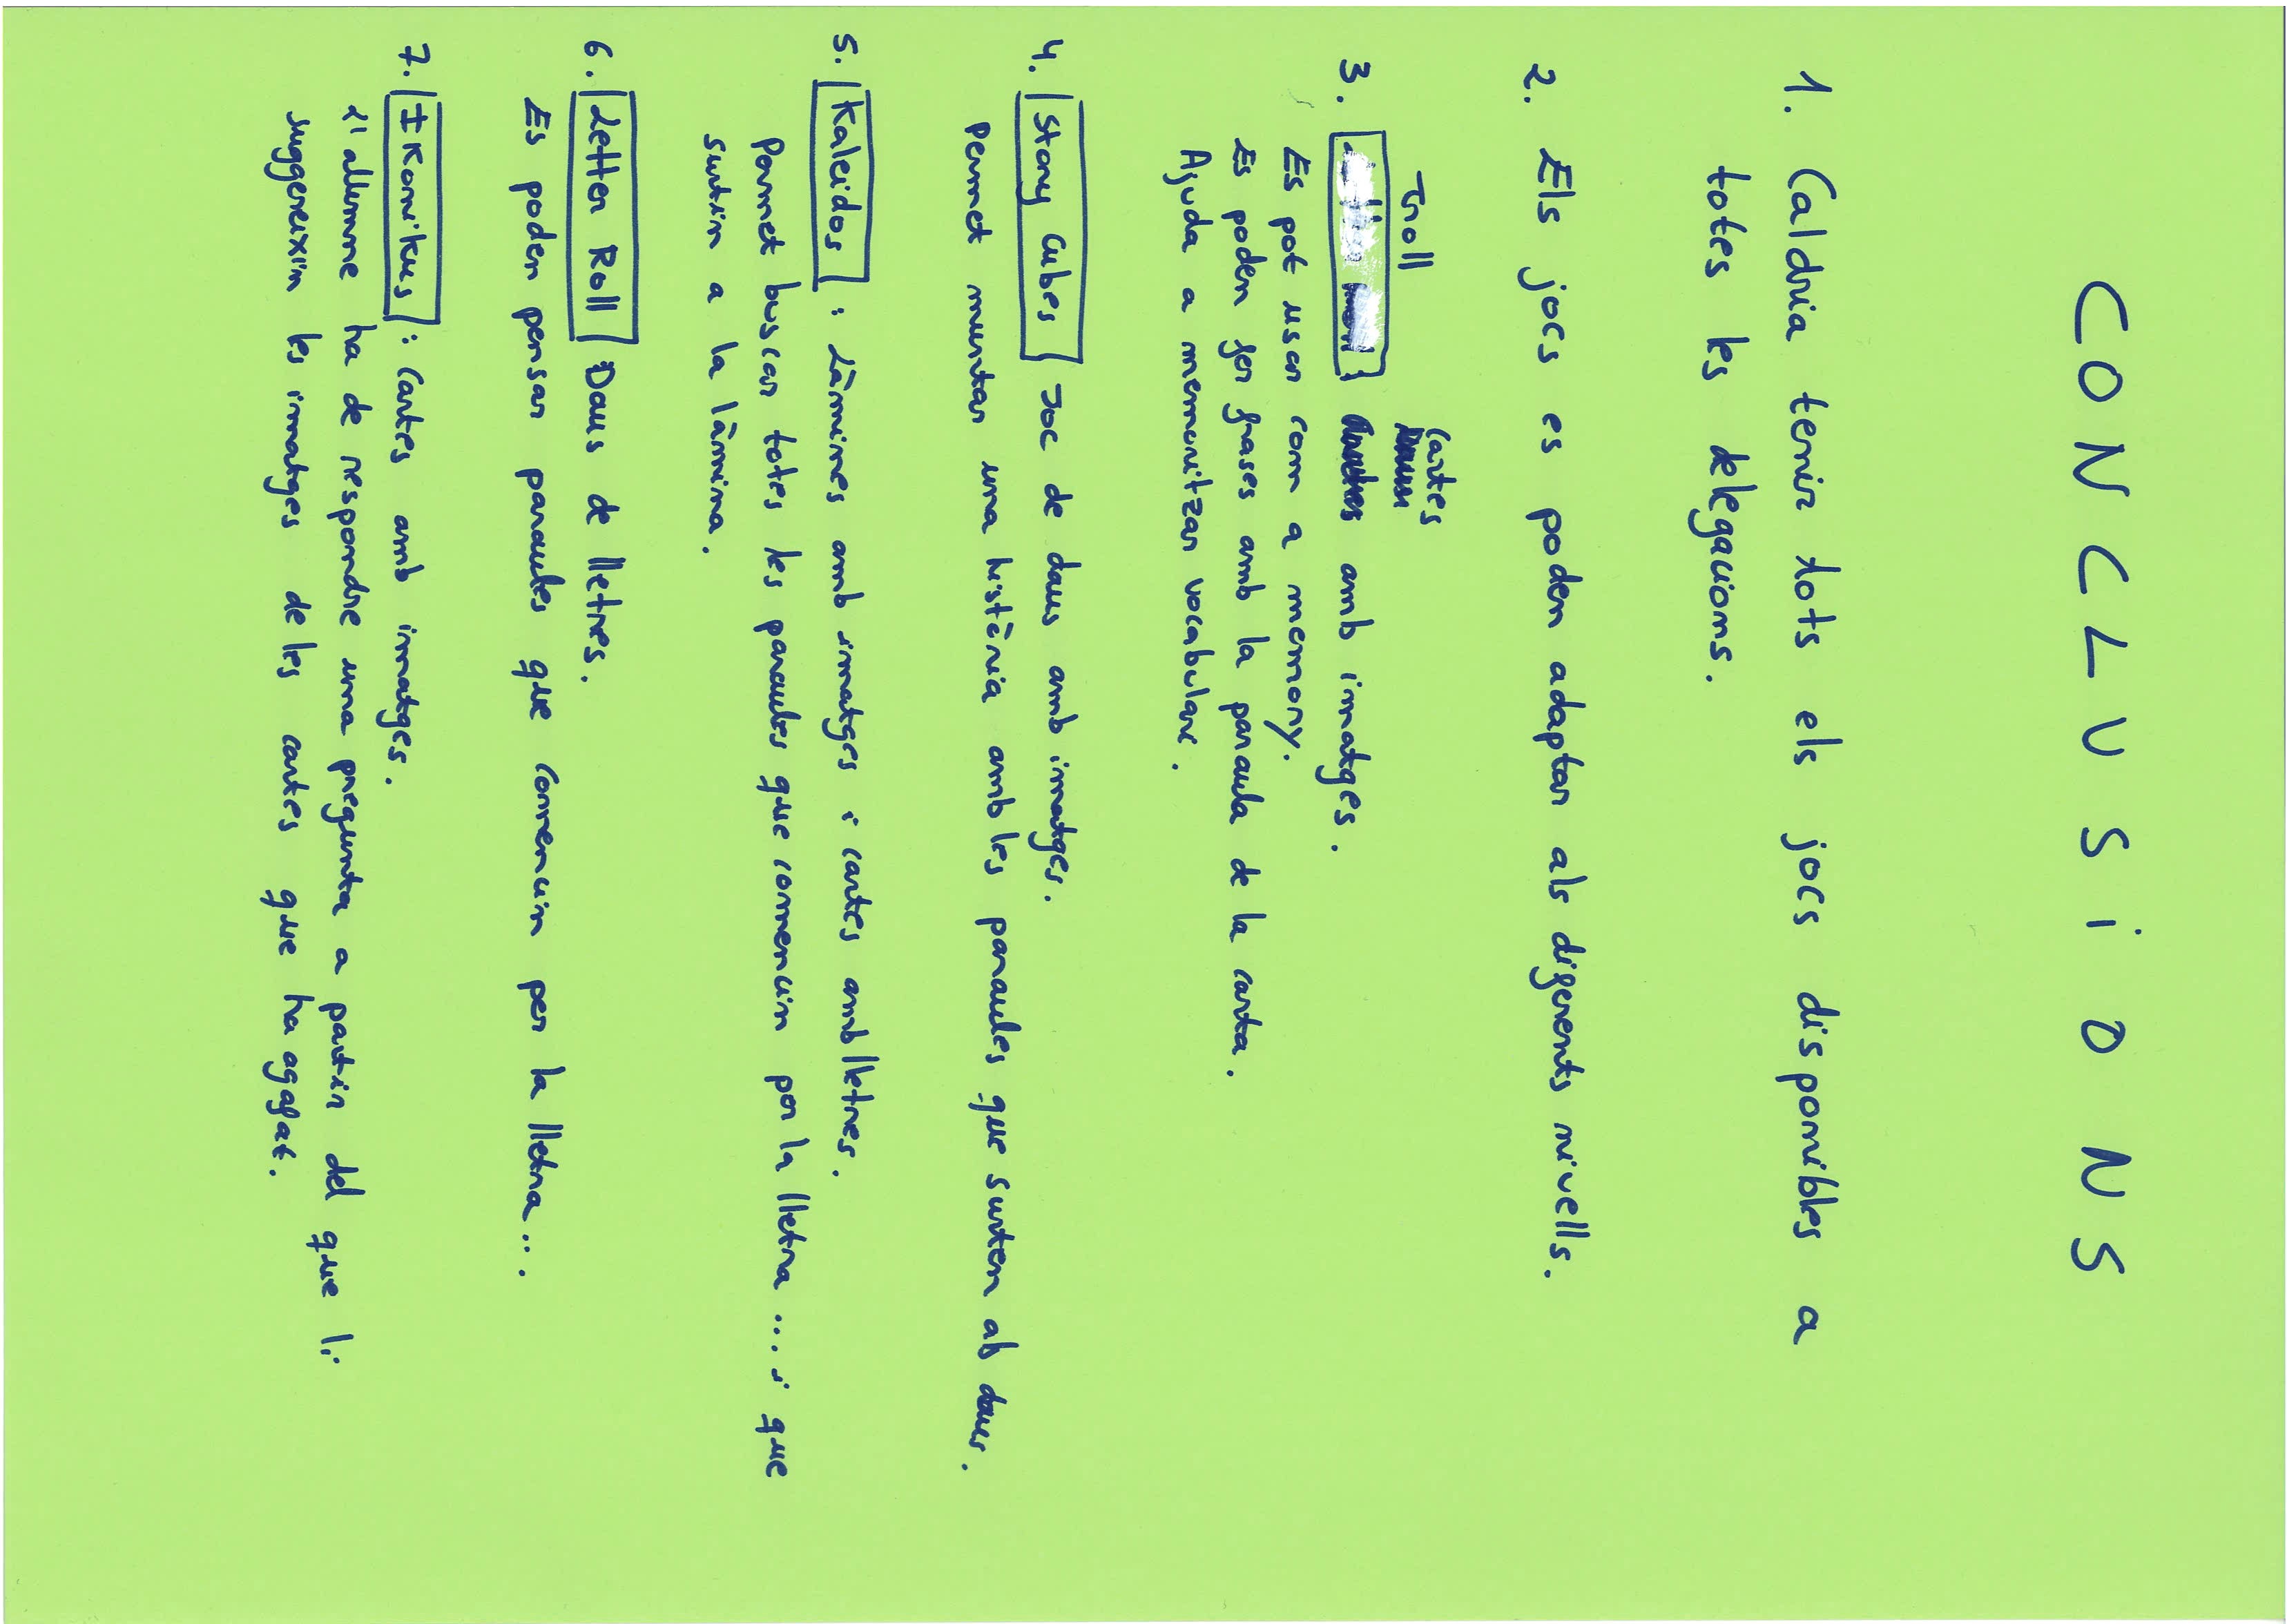 CONCLUSiONS
1. Caldria tenir tots els jocs disponibles a
totes les delegacions.
2. Els jocs es poden adaptar als diferents nivells.
Troll
cartes
3. amb imatges.
Es pot usar com a memory.
Es poden fer frases amb la paraula de la carta.
Ajuda a memoritzar vocabulari.
4. Story Cubes Joc de daus amb imatges.
Permet muntar una història amb les paraules que surten als daus.
5. Kaleidos : Làmines amb imatges i cartes amb lletres.
Permet buscar totes les paraules que comencin per la lletra .... i que
surtin a la làmina.
6. Letter Roll Daus de lletres.
Es poden pensar paraules que comencin per la lletra...
7. Ikonikus : Cartes amb imatges.
L'alumne ha de respondre una pregunta a partir del que li
suggereixin les imatges de les cartes que ha agafat.